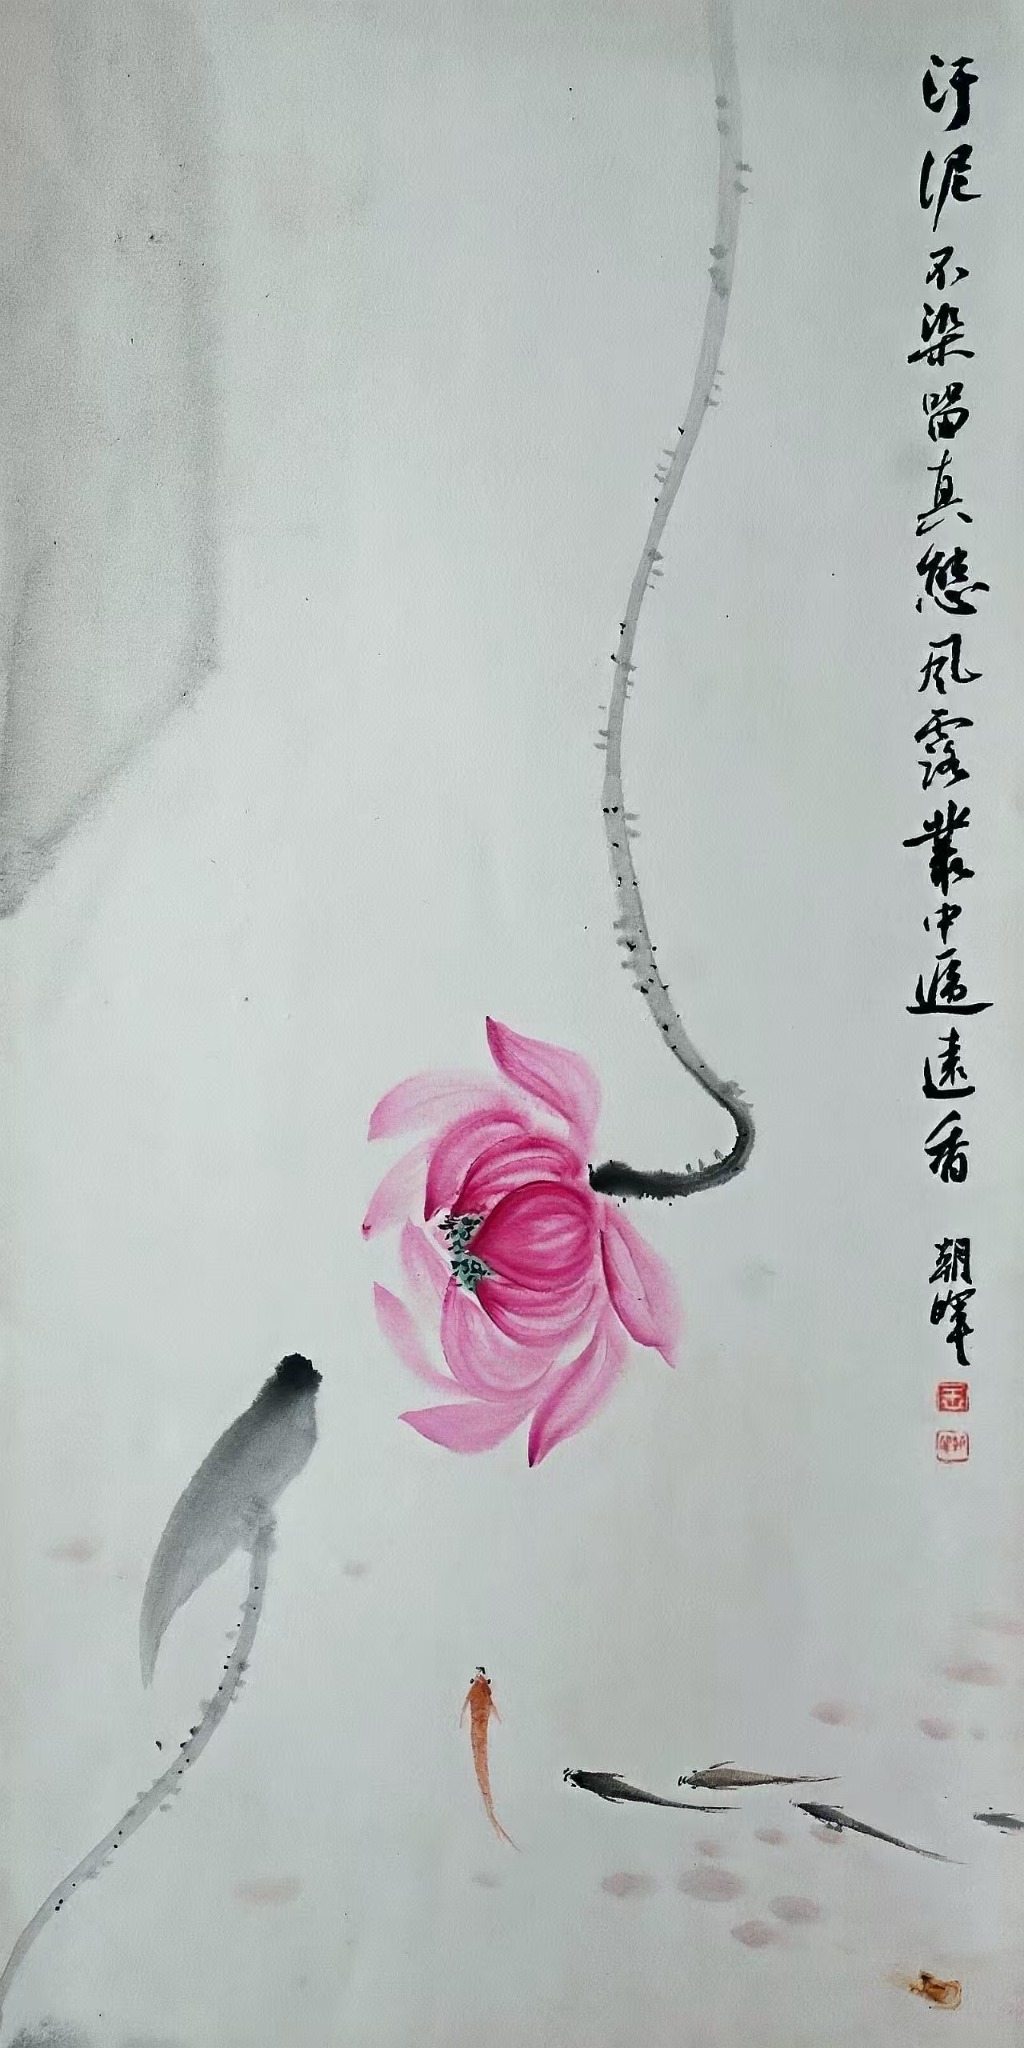 汙泥不染留真態風露叢中遞遠香 朝暉